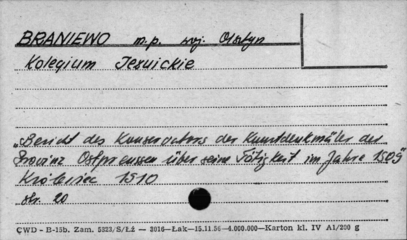 BRANIEWO m.p. woj. Olsztyn
Kolegium Jezuickie
„Bericht des Konservators der Kunstdenkmäler der
Provinz Ostpreussen über seine Tätigkeit im Jahre 1909"
Królewiec 1910
str. 20
CWD - B-15b. Zam. 5323/S/Łż — 3016—Łak—15.11.56—4.000.000—Karton kl. IV A1/200 g